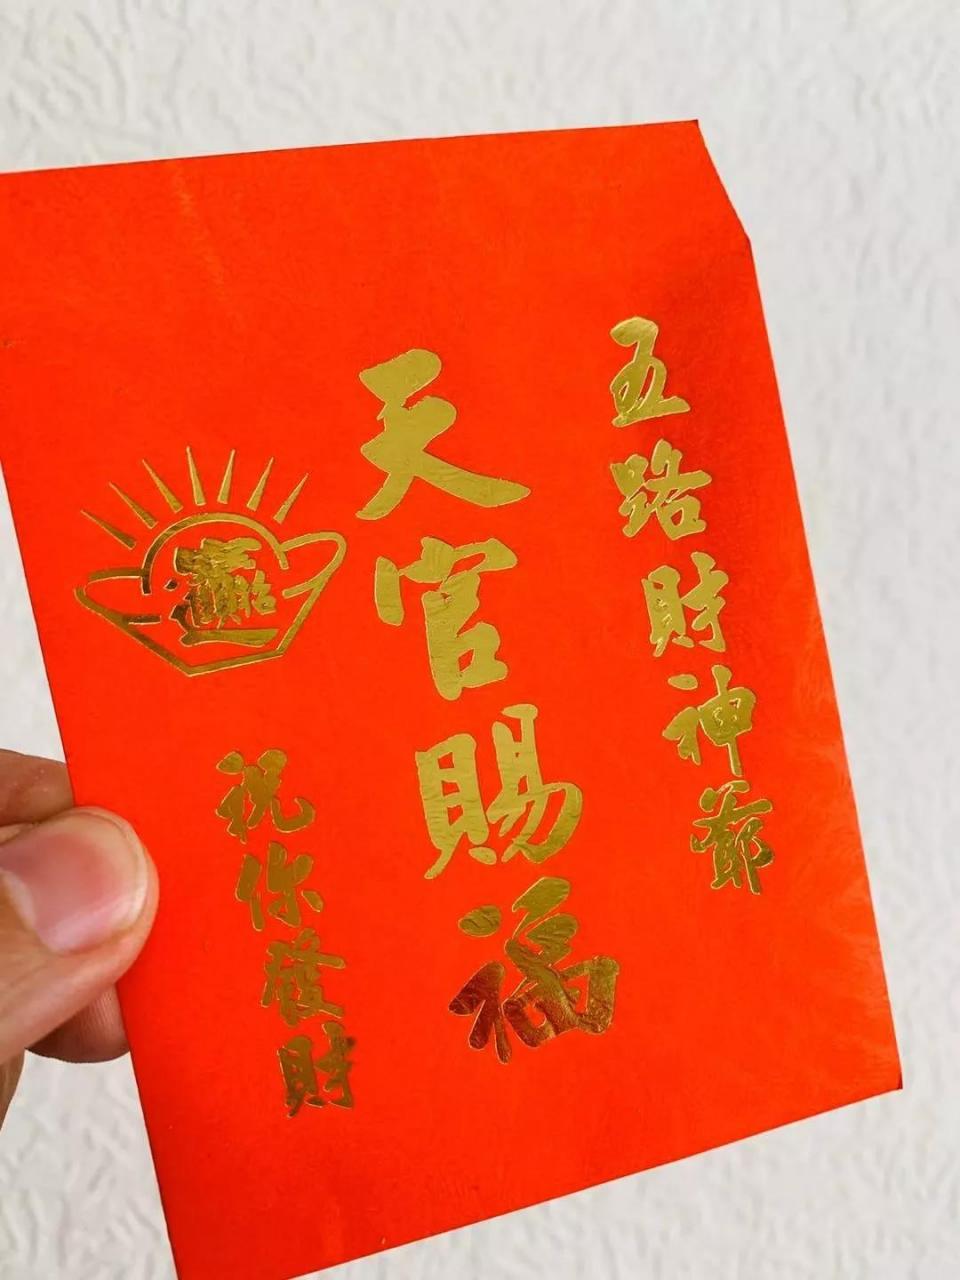 五路財神爺
天官賜福
招財進寶
祝你發財